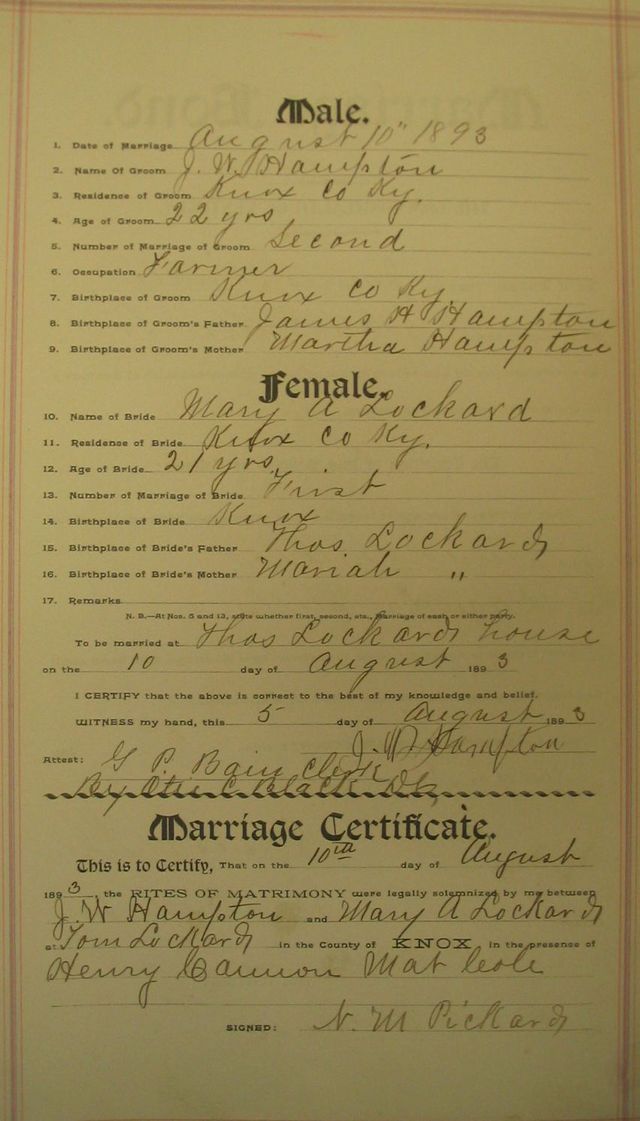 Male.
1. Date of Marriage August 10" 1893
2. Name Of Groom J. W. Hampton
3. Residence of Groom Knox Co Ky.
4. Age of Groom 22 yrs
5. Number of Marriage of Groom Second
6. Occupation Farmer
7. Birthplace of Groom Knox Co Ky
8. Birthplace of Groom's Father James H Hampton
9. Birthplace of Groom's Mother Martha Hampton
Female.
10. Name of Bride Mary A Lockard
11. Residence of Bride Knox Co Ky.
12. Age of Bride 21 yrs
13. Number of Marriage of Bride First
14. Birthplace of Bride Knox
15. Birthplace of Bride's Father Thos. Lockard
16. Birthplace of Bride's Mother Mariah "
17. Remarks
N. B.—At Nos. 5 and 13, state whether first, second, etc., marriage of each or either party.
To be married at Thos Lockards house
on the 10 day of August 1893
I CERTIFY that the above is correct to the best of my knowledge and belief.
WITNESS my hand, this 5 day of August 1893
J. W. Hampton
Attest: G P. Bain Clerk
By C. Black Dk
Marriage Certificate.
This is to Certify, That on the 10th day of August
1893, the RITES OF MATRIMONY were legally solemnized by me between
J. W Hampton and Mary A Lockard
at Tom Lockard in the County of KNOX in the presence of
Henry Cannon Mat Cole
SIGNED: N. M Pickard